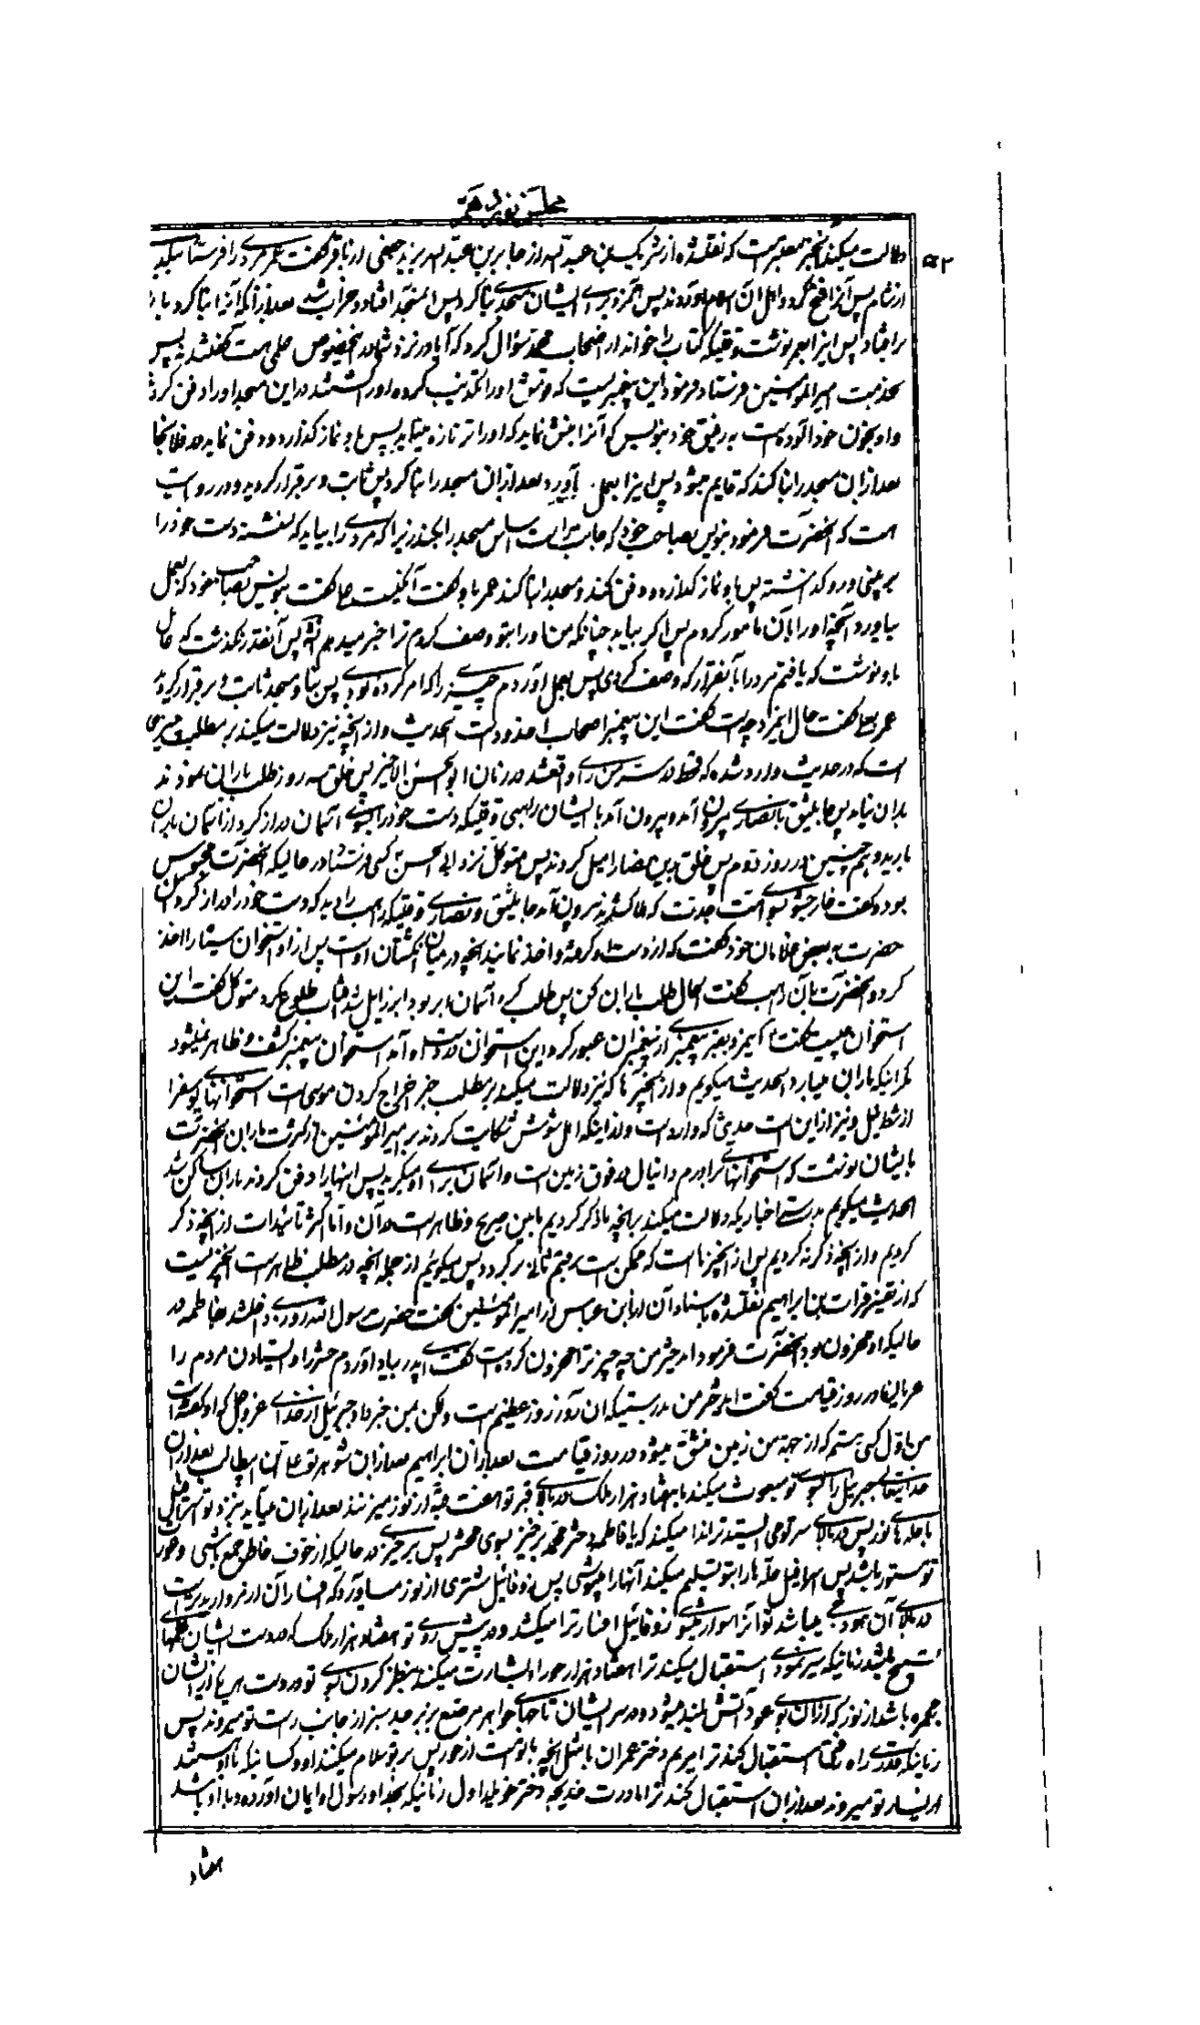 مجلس نوزدهم
۵۲
دلالت میکند خبر معتبریست که نقلشده از شریک بن عبد الله از جابر بن عبد الله بن یزید جعفی از باقر گفت عمر مردی را فرستاد
از شام پس آنرا فتح کرد و اهل آن اسلام آوردند پس از برای ایشان مسجدی بنا کرد پس المسجد افتاد و خراب شد بعد از آنکه آنرا بنا کرد باز
را فتاد پس اینرا بعمر نوشت وقتیکه کتاب را خواند از اصحاب محمد سؤال کرد که آیا در نزد شما در اینخصوص علمی هست گفتند نه پس
بخدمت امیر المؤمنین فرستاد فرمود این پیغمبریست که قومش او را تکذیب کرده او را کشتند در این مسجد او را دفن کردند
و او بخون خود آلوده است به رفیق خود بنویس که آنرا نبش نماید که او را تر و تازه مییابد پس باو نماز گذارد و دفن نماید در فلانجا
بعد از آن مسجد را بنا کند که قایم میشود پس اینرا بعمل آورد بعد از آن مسجد را بنا کرد پس ثابت و برقرار گردید و در روایت
است که آنحضرت فرمود بنویس بصاحب خود که جانب راست اساس مسجد را بکند زیرا که مردی را بیابد که نشسته دست خود را
بر بینی و رو گذاشته پس باو نماز گذارده و دفن کند و مسجد را بنا کند عمر باو گفت آن کیست گفت بنویس بصاحب خود که بعمل
بیاورد آنچه او را بآن مأمور کردم پس اگر بیابد چنانکه من او را بتو وصف کردم ترا خبر میدهم پس آنقدر نگذشت که عامل
باو نوشت که یافتم مرد را بآنقرار که وصف کردی پس بعمل آوردم چیزی را که امر کرده بودی پس بنای مسجد ثابت و برقرار گردید
عمر بعلی گفت حال اینمرد چیست گفت این پیغمبر اصحاب اخدود است الحدیث و از آنچه نیز دلالت میکند بر مطلب چیزی
است که در حدیث وارد شده که قحط در سر من رای واقعشد در زمان ابو الحسن الاخیر پس خلق سه روز طلب باران نمودند
باران نیامد پس جاثلیق با نصاری بیرون آمد و بیرون آمد با ایشان راهبی وقتیکه دست خود را بسوی آسمان دراز کرد از آسمان باران
بارید و همچنین در روز دوم پس خلق بدین نصارا میل کردند پس متوکل نزد ابی الحسن کسی فرستاد در حالیکه آنحضرت محبوس
بود و گفت خارج شو بسوی امت جدت که هلاک شدند بیرون آمد جاثلیق و نصاری وقتیکه راهب را دید که دست خود را دراز کرد آن
حضرت به بعضی غلامان خود گفت که از دست او گرفته و اخذ نمایند آنچه در میان انگشتان اوست پس از او استخوان سیاه را اخذ
کرد و آنحضرت بآن راهب گفت الحال طلب باران کن پس طلب کرد و آسمان ابر بود ابر زایل شد آفتاب طلوع کرد متوکل گفت این
استخوان چیست گفت اینمرد بقبر پیغمبری از پیغمبران عبور کرد این استخوان در دست او آمد استخوان پیغمبر کشف و ظاهر نمیشود
مگر اینکه باران میبارد الحدیث میگویم و از آنخبرها که نیز دلالت میکند بر مطلب خبر اخراج کردن موسی است استخوانهای یوسف را
از شط نیل و نیز از این است حدیثی که وارد است در اینکه اهل شوش شکایت کردند بر امیر المؤمنین از کثرت باران آنحضرت
بایشان نوشت که استخوانهای برادرم دانیال در فوق زمین است و آسمان برای او میگرید پس اینها را دفن کردند باران ساکن شد
الحدیث میگویم بدرستی اخباریکه دلالت میکند بر آنچه ما ذکر کردیم باین صریح و ظاهر است در آن و اما اکثر تائیدات از آنچه ذکر
کردیم و از آنچه ذکر نه کردیم پس از آنچیزهاست که ممکن است پس میگوئیم از جمله آنچه در مطلب ظاهر است آنخبریست
که از تفسیر فرات بن ابراهیم نقلشده باسناد آن از ابن عباس از امیر المؤمنین گفت حضرت رسول الله روزی داخلشد بفاطمه در
حالیکه او محزون بود آنحضرت فرمود ای دختر من چه چیز ترا محزون کرده است گفت ای پدر بیاد آوردم حشر را و ایستادن مردم را
عریان در روز قیامت گفت ای دختر من بدرستیکه آن روز روز عظیم است ولکن بمن خبر داد جبرئیل از خدای عز و جل که او گفته است
من اول کسی هستم که از جهه من زمین منشق میشود در روز قیامت بعد از آن ابراهیم بعد از آن شوهر تو علی بن ابیطالب بعد از آن
خدایتعالی جبریل را بسوی تو مبعوث میکند با هفتاد هزار ملک در بالای قبر تو هفت قبه از نور میزنند بعد از آن میآید بنزد تو اسرافیل
با حله های نور پس در بالای سر تو می ایستد ترا ندا میکند که یا فاطمه دختر محمد برخیز بسوی محشر پس برخیزی در حالیکه از خوف خاطر جمع باشی و عورت
تو مستور باشد پس اسرافیل حله ها را بتو تسلیم میکند آنها را میپوشی پس زوقائیل شتری از نور میآورد که افسار آن از مروارید تر است
در بالای آن هودجی میباشد تو آنرا سوار میشوی زوقائیل افسار ترا میکشد و در پیش روی تو هفتاد هزار ملک در دست ایشان علمهای
تسبیح باشد زمانیکه سیر نمودی استقبال میکند ترا هفتاد هزار حورا بشارت میکنند بنظر کردن بسوی تو در دست هر یک از ایشان
مجمره باشد از نور که از آن بوی عود بی آتش بلند میشود و در سر ایشان تاجهای جواهر مرصع بزبرجد سبز از جانب راست تو میروند پس
زمانیکه قدری راه رفتی استقبال کند ترا مریم دختر عمران با مثل آنچه با تو است از حور پس بر تو سلام میکند او و کسانیکه با او هستند
از یسار تو میروند بعد از آن استقبال کند ترا مادرت خدیجه دختر خویلد اول زنانیکه بخدا و رسول او ایمان آورده و با او باشد
هفتاد